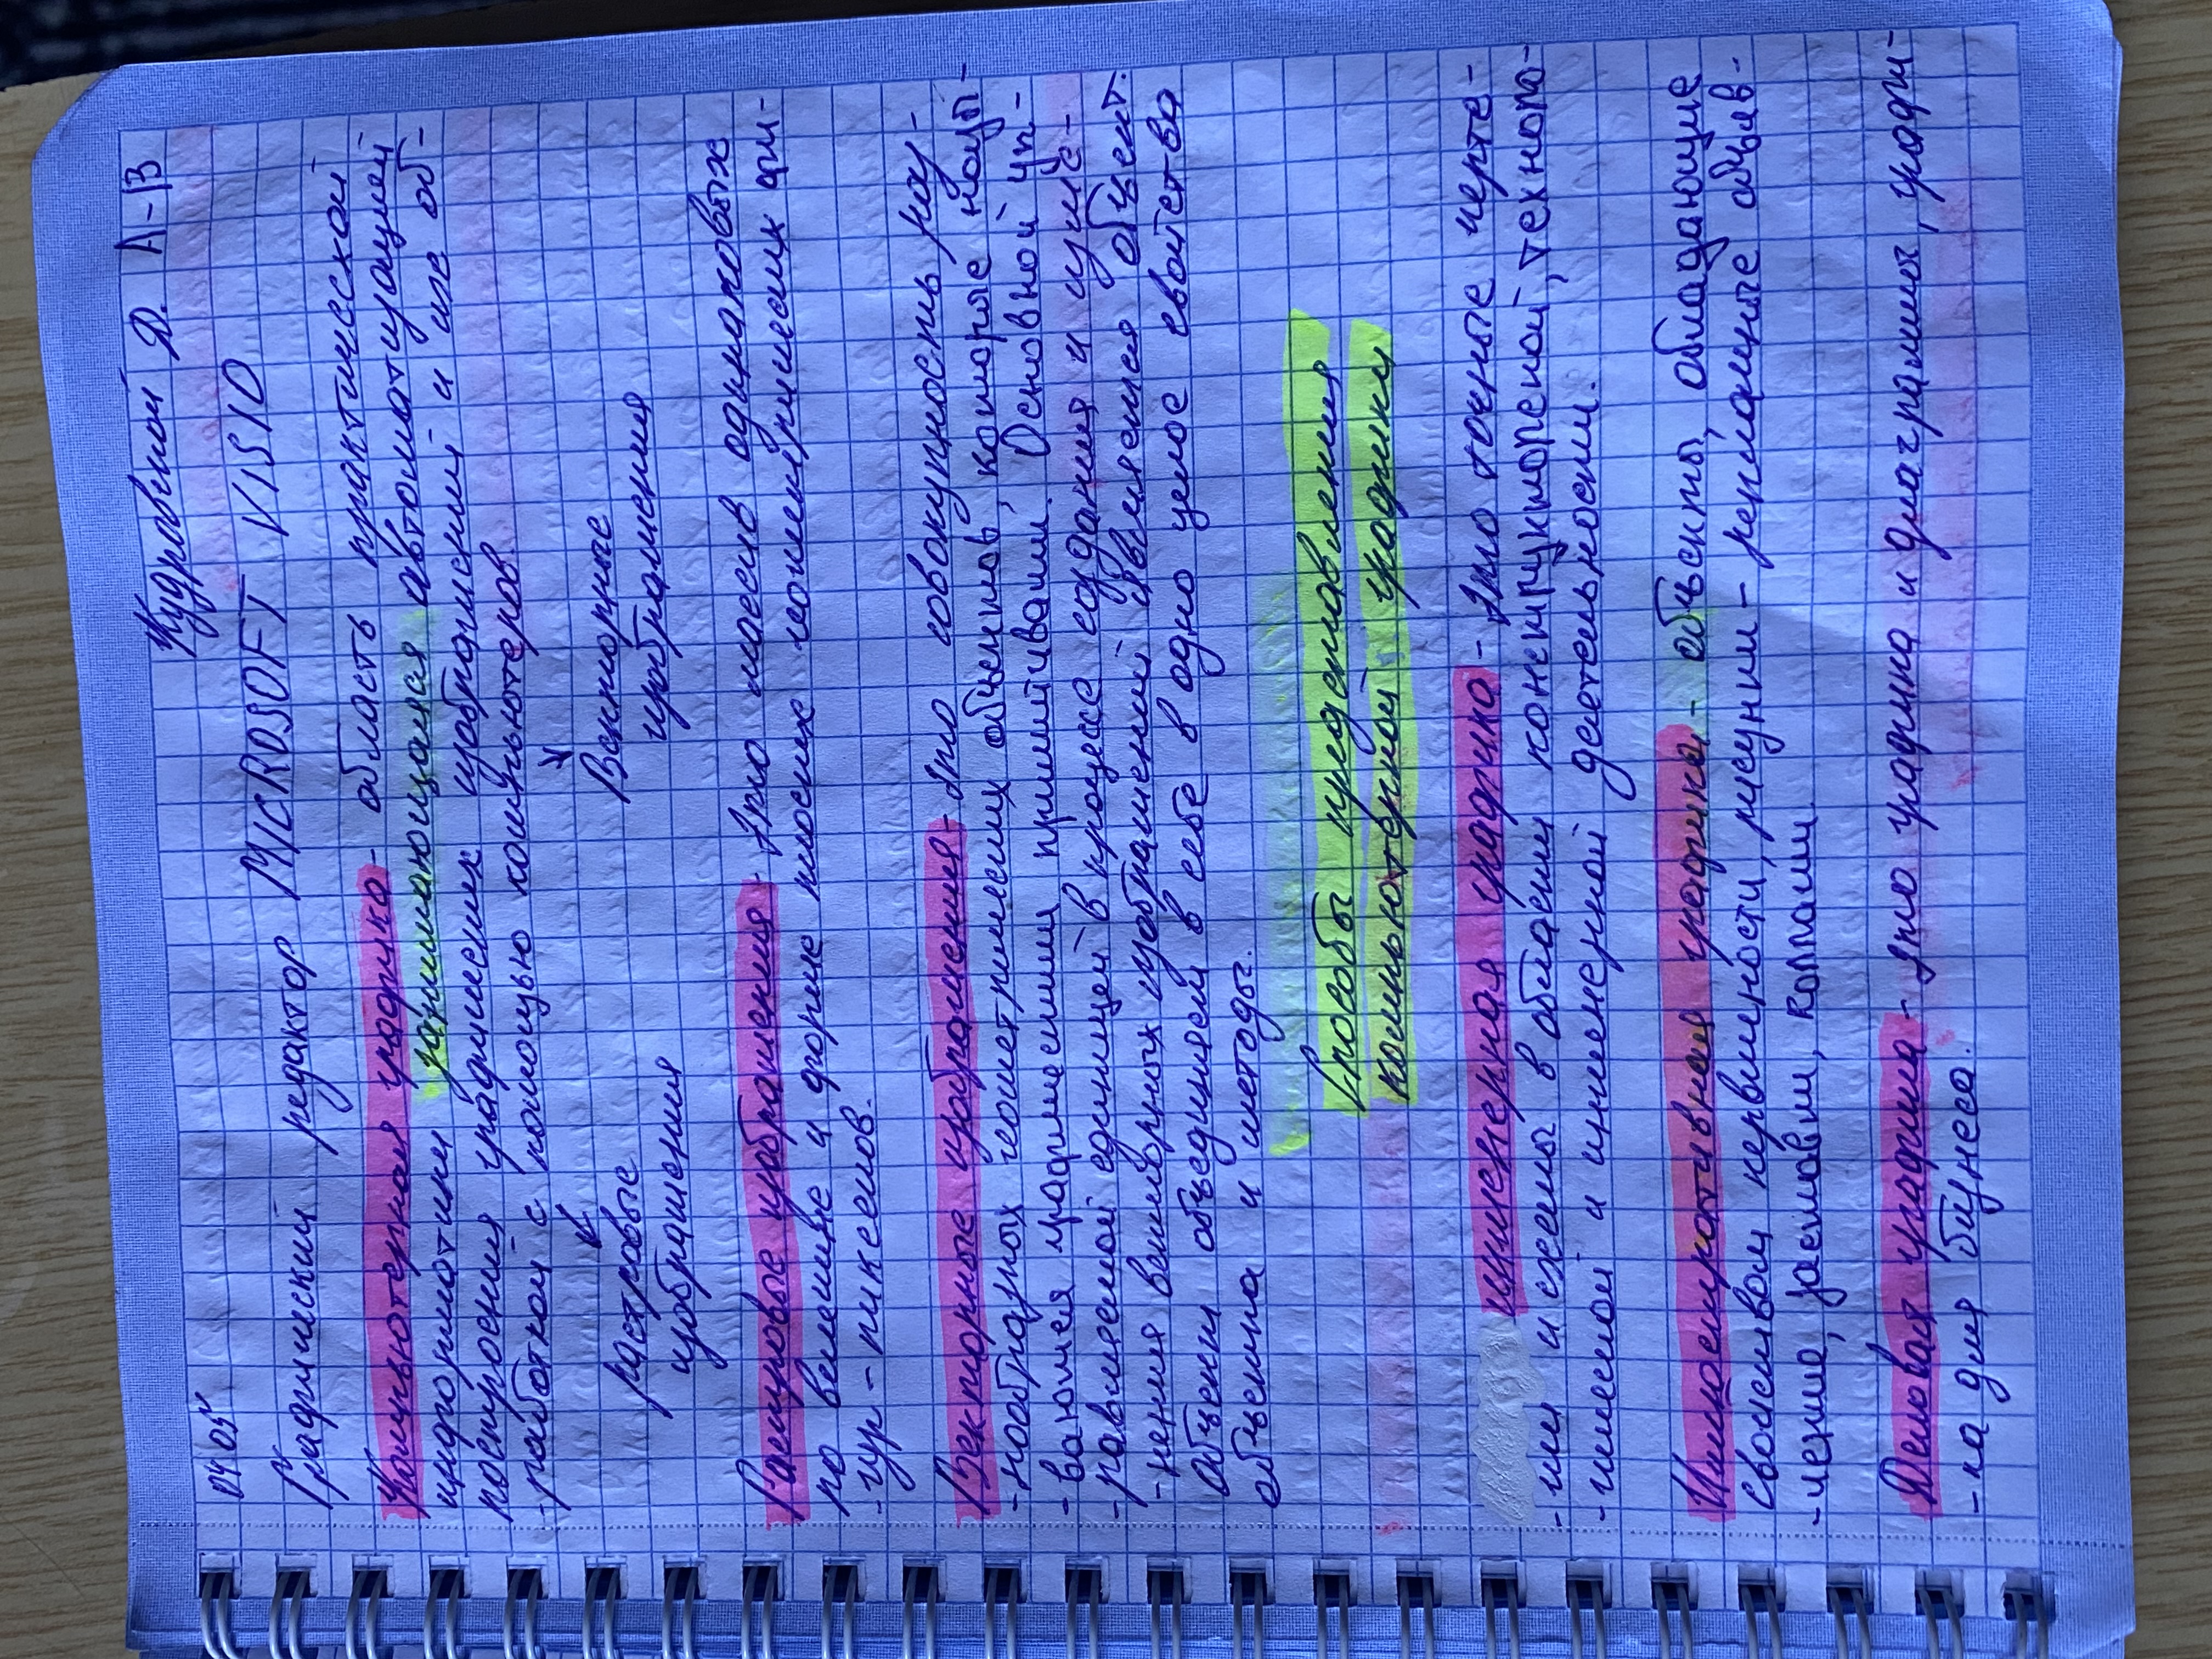 Кудровский Д. А-13
04 05
Графический редактор MICROSOFT VISIO
Компьютерная графика - область практической
информатики, занимающаяся автоматизацией
построения графических изображений и их об-
-работкой с помощью компьютеров.
растровые Векторные
изображения изображения
Растровые изображения - это массив одинаковых
по величине и форме плоских геометрических фи-
-гур - пикселов.
Векторные изображения - это совокупность раз-
-нообразных геометрических объектов, которые назы-
-ваются графическими примитивами. Основной уп-
-равляемой единицей в процессе создания и изме-
-нения векторных изображений является объект.
Объекты объединяем в себе в одно целое свойства
объекта и методы.
Способы представления
компьютерной графики
Инженерная графика - это точные черте-
-жи и схемы в области конструкторской, техноло-
-гической и инженерной деятельности.
Иллюстративная графика - объекты, обладающие
свойством первичности, рисунки - рекламные объяв-
-ления, заставки, коллажи.
Деловая графика - это графика и диаграммы, графи-
-ка для бизнеса.